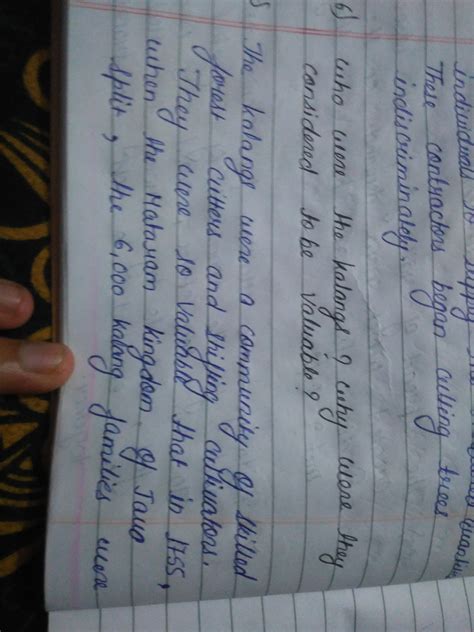 individuals to supply
These contractors began cutting trees
indiscriminately.
6) who were the kalangs? why were they
considered to be valuable?
The kalangs were a community of skilled
forest cutters and shifting cultivators.
They were so valuable that in 1755,
when the Mataram kingdom of Java
split, the 6,000 kalang families were